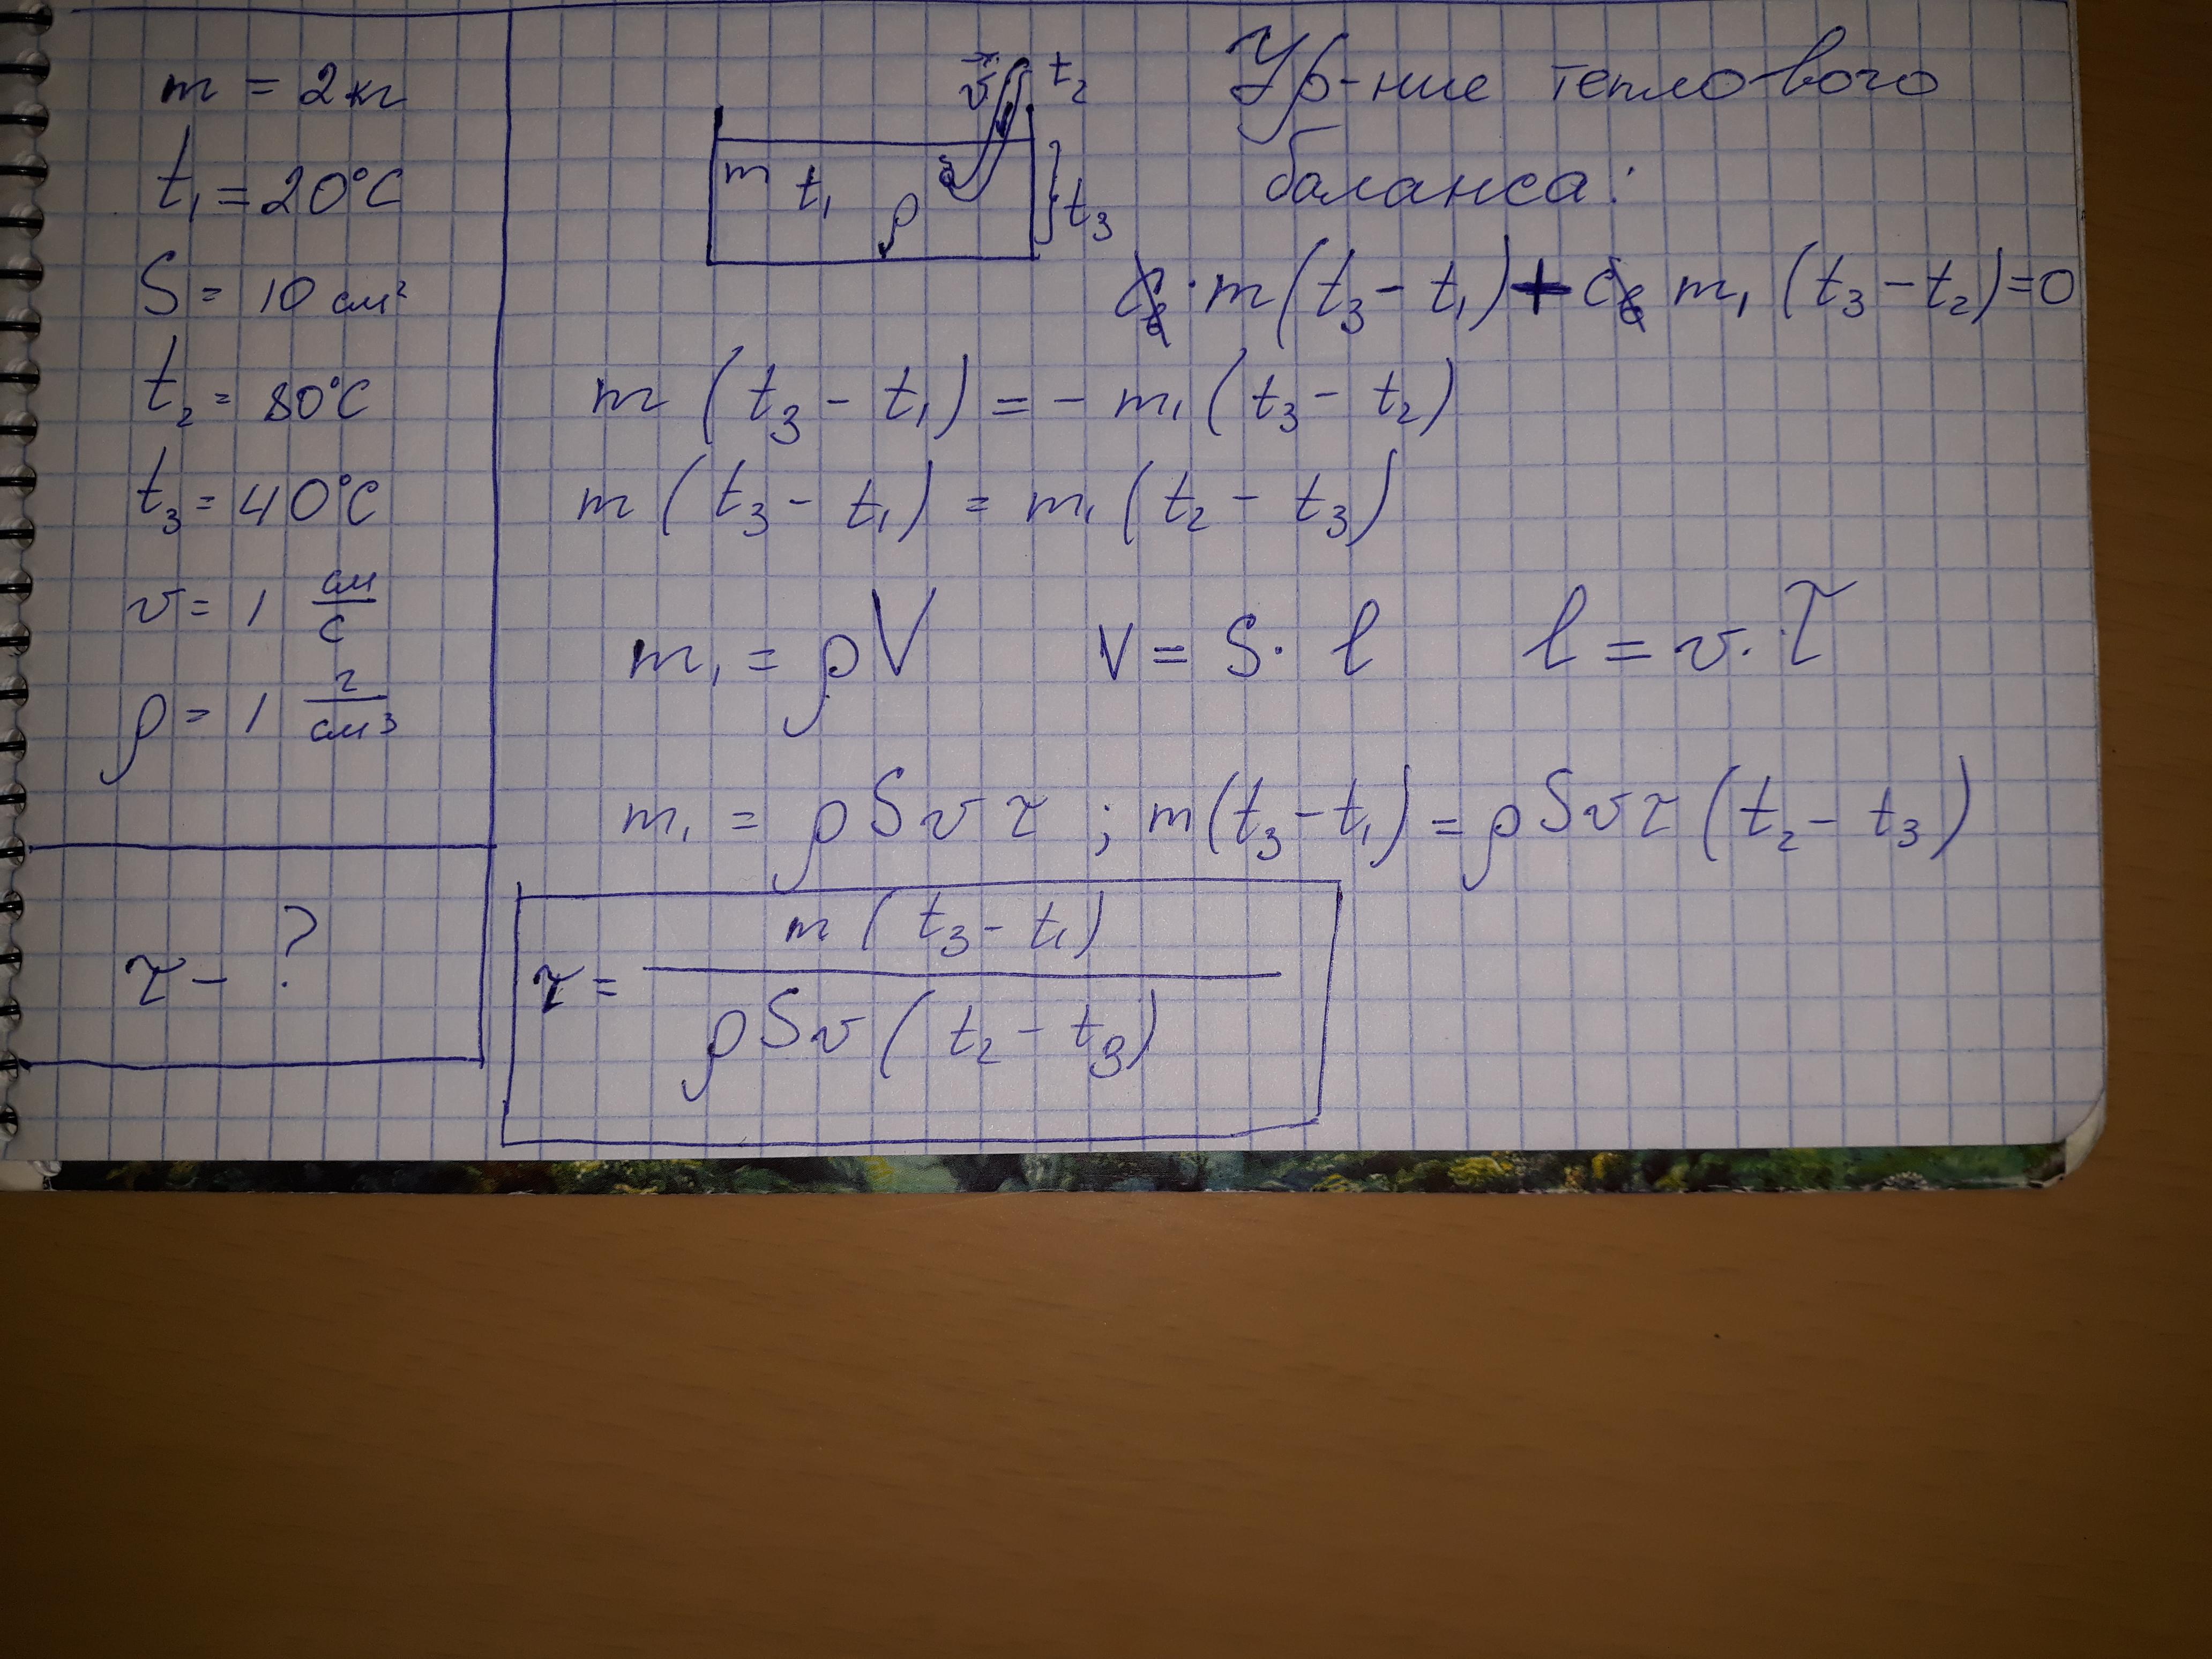 m = 2 кг
t₁ = 20°C
S = 10 см²
t₂ = 80°C
t₃ = 40°C
v = 1 см/с
ρ = 1 г/см³
τ - ?
v⃗ t₂
m t₁ S
ρ t₃
Ур-ние теплового
баланса:
cв · m (t₃ - t₁) + cв m₁ (t₃ - t₂) = 0
m (t₃ - t₁) = - m₁ (t₃ - t₂)
m (t₃ - t₁) = m₁ (t₂ - t₃)
m₁ = ρV V = S · l l = v · τ
m₁ = ρSvτ ; m (t₃ - t₁) = ρSvτ (t₂ - t₃)
τ = m (t₃ - t₁) / ρSv (t₂ - t₃)